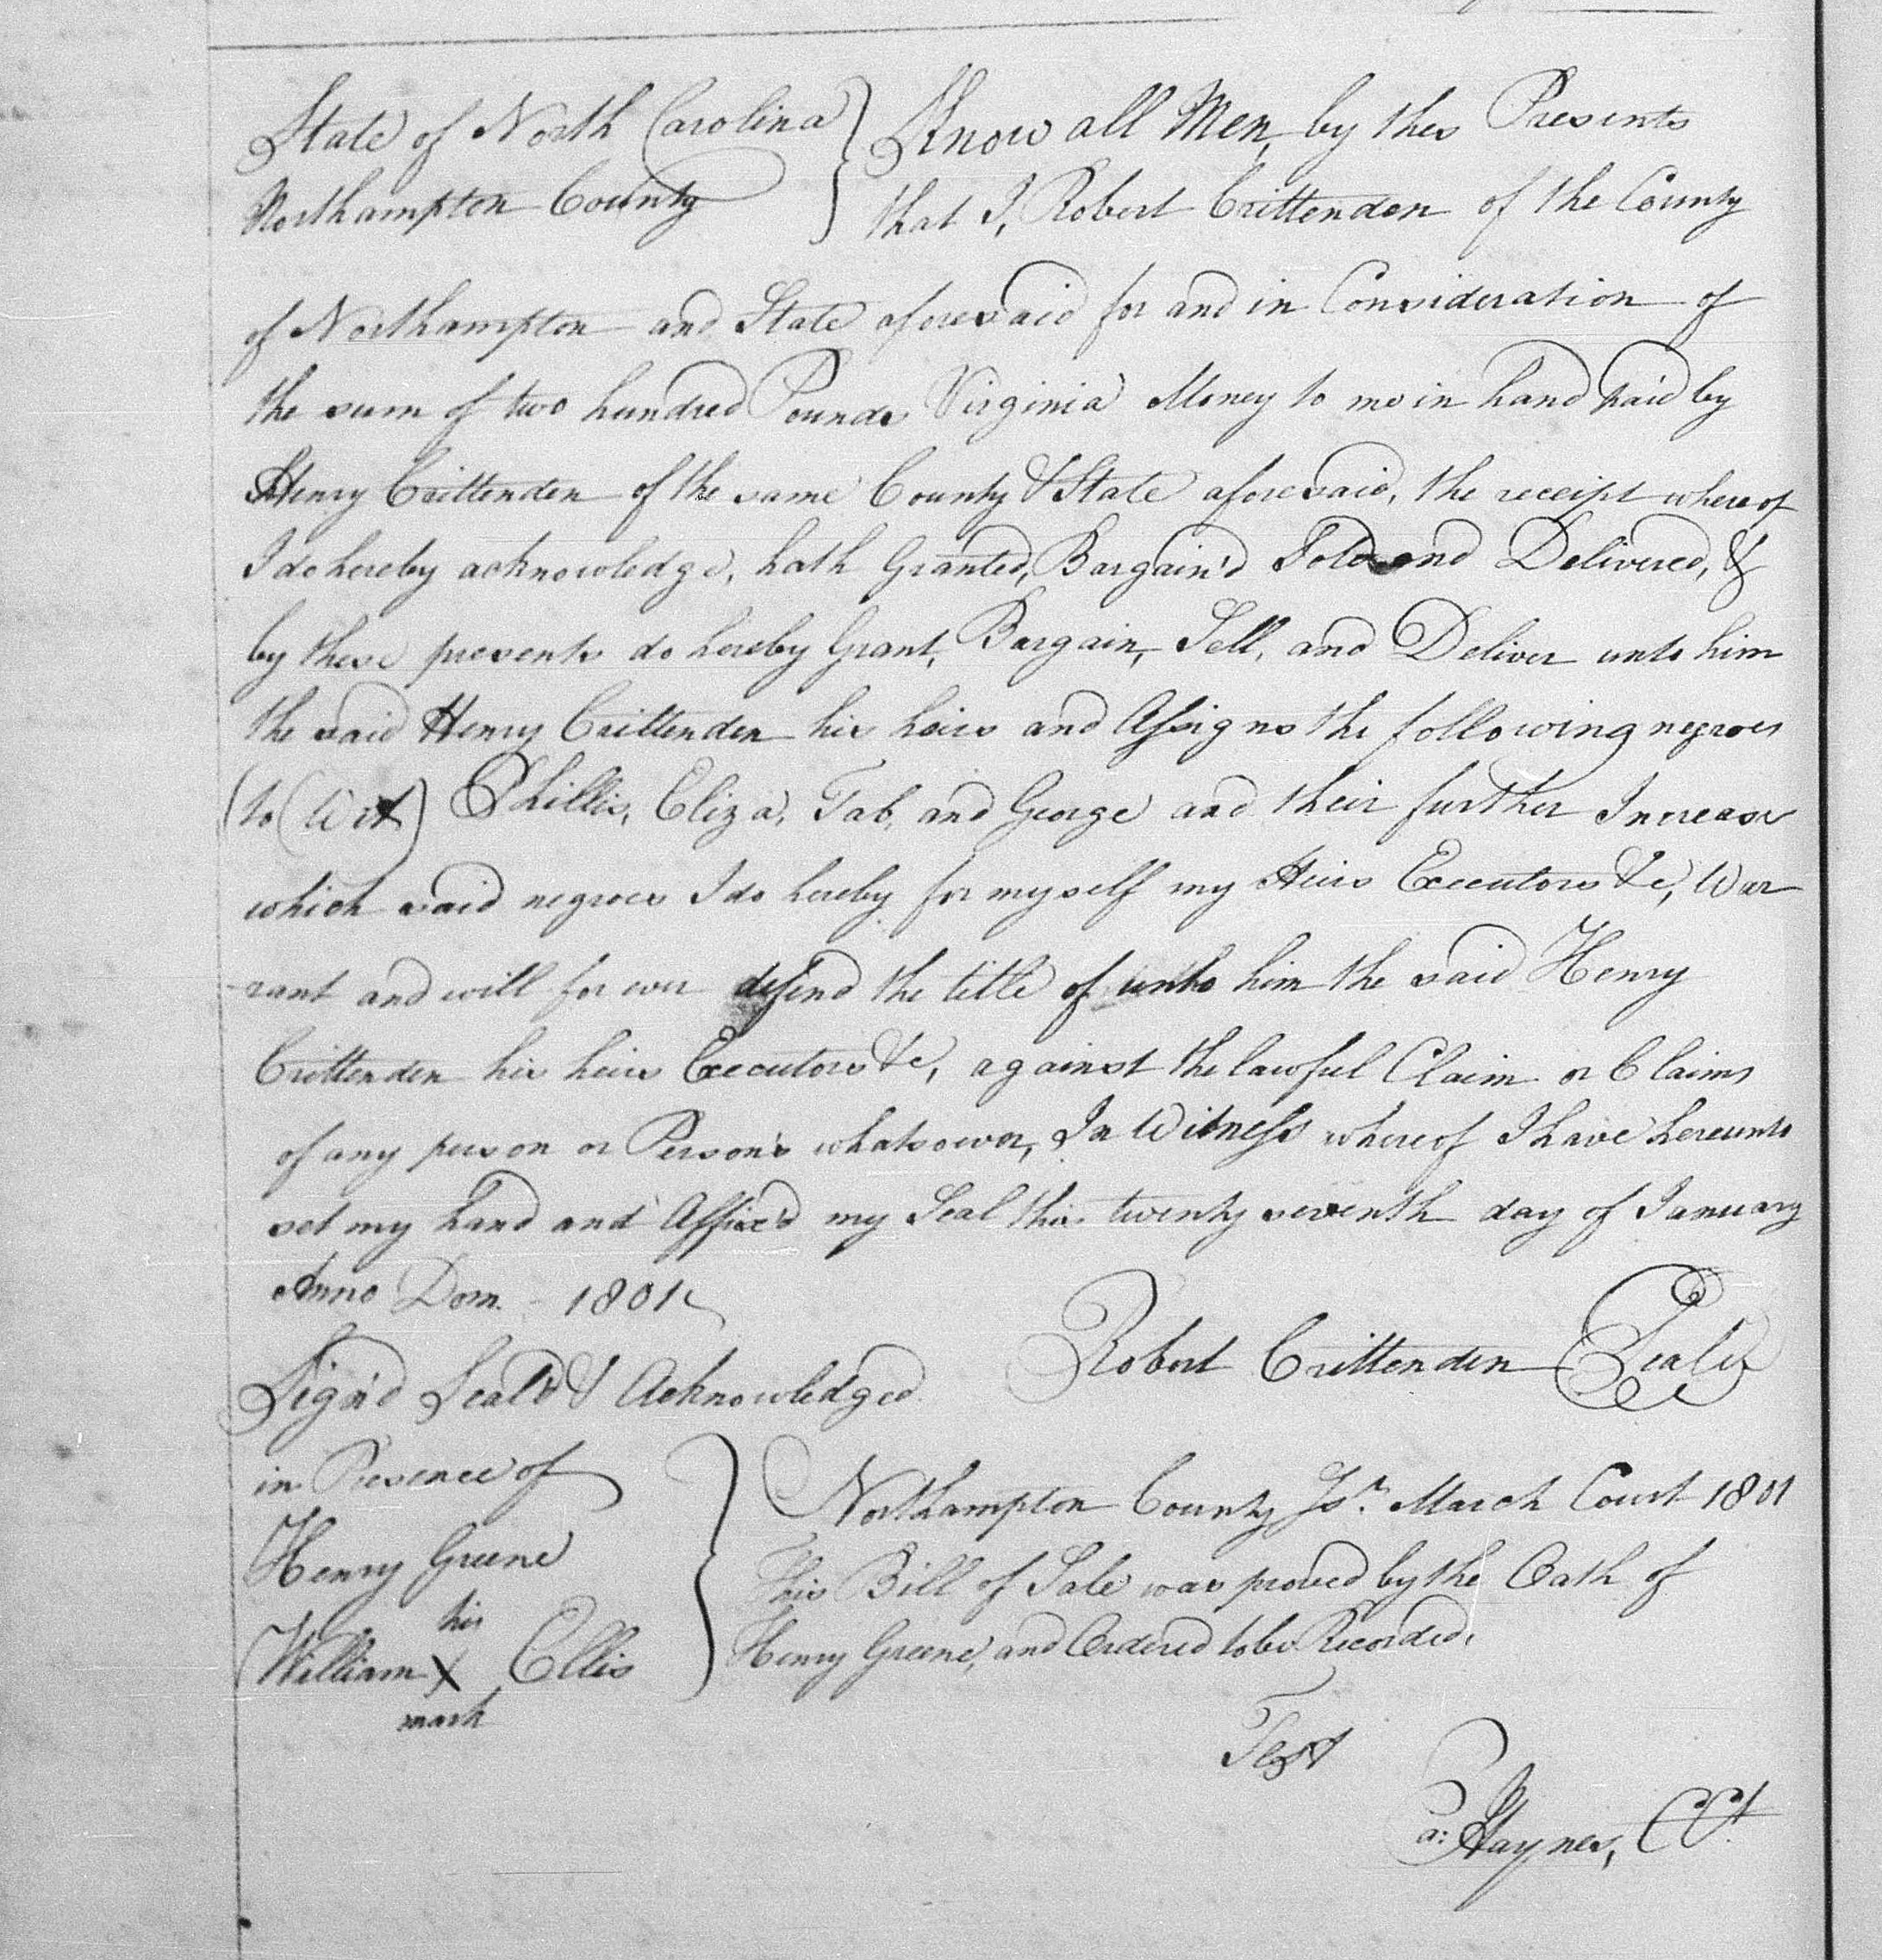 State of North Carolina } Know all Men, by thes Presents
Northampton County } that I, Robert Crittenden of the County
of Northampton and State aforesaid for and in Consideration of
the sum of two hundred Pounds Virginia Money to me in hand paid by
Henry Crittenden of the same County & State aforesaid, the receipt whereof
I do hereby acknowledge, hath Granted, Bargain'd Sold and Delivered, &
by these presents do hereby Grant, Bargain, Sell, and Deliver unto him
the said Henry Crittenden his heirs and Assigns the following negroes
(to (Wit) Phillis, Eliza, Tab, and George and their further Increase
which said negroes I do hereby for myself my Heirs Executors &c, War
-rant and will for ever defend the title of unto him the said Henry
Crittenden his heirs Executors &c, against the lawful Claim or Claims
of any person or Person's whatsoever, In Witness whereof I have hereunto
set my hand and Affix'd my Seal this twenty seventh day of January
Anno Dom. - 1801
Robert Crittenden Seal
Sign'd Seal'd & Acknowledged
in Presence of
Henry Greene
his
William X Ellis
mark
Northampton County Jst. March Court 1801
This Bill of Sale was proved by the Oath of
Henry Greene, and Ordered to be Recorded.
Test
Haynes, CCt